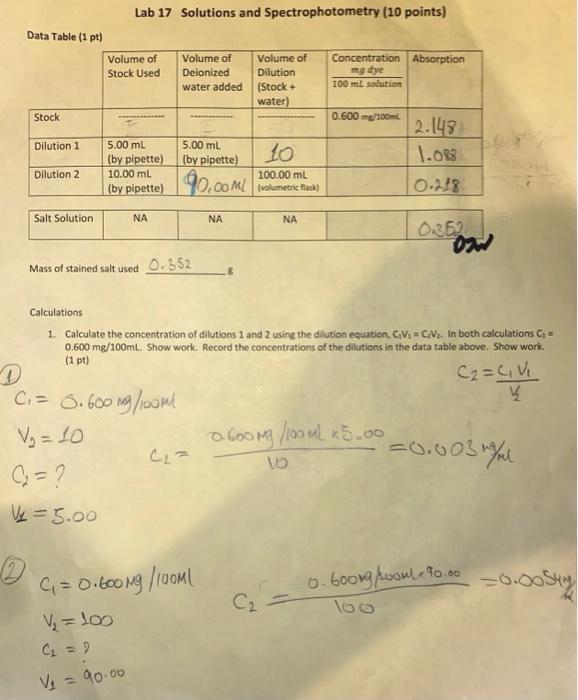 Lab 17 Solutions and Spectrophotometry (10 points)
Data Table (1 pt)
Volume of Stock Used
Volume of Deionized water added
Volume of Dilution (Stock + water)
Concentration mg dye 100 mL solution
Absorption
Stock ------------ ------------ ------------ 0.600 mg/100mL 2.148
Dilution 1 5.00 mL (by pipette) 5.00 mL (by pipette) 10 1.088
Dilution 2 10.00 mL (by pipette) 90.00 Ml 100.00 mL (volumetric flask) 0.218
Salt Solution NA NA NA 0.352
Mass of stained salt used 0.352 g
Calculations
1. Calculate the concentration of dilutions 1 and 2 using the dilution equation, C₁V₁ = C₂V₂. In both calculations C₁ =
0.600 mg/100mL. Show work. Record the concentrations of the dilutions in the data table above. Show work.
(1 pt)
C2 = C1 V1 / V2
①
C1 = 0.600 mg/100Ml
V2 = 10
C2 = ?
V1 = 5.00
C2 = 0.600 Mg /100 Ml x 5.00 / 10 = 0.003 mg/ml
②
C1 = 0.600 Mg /100Ml
V2 = 100
C2 = ?
V1 = 90.00
C2 = 0.600mg/100ml x 90.00 / 100 = 0.0054